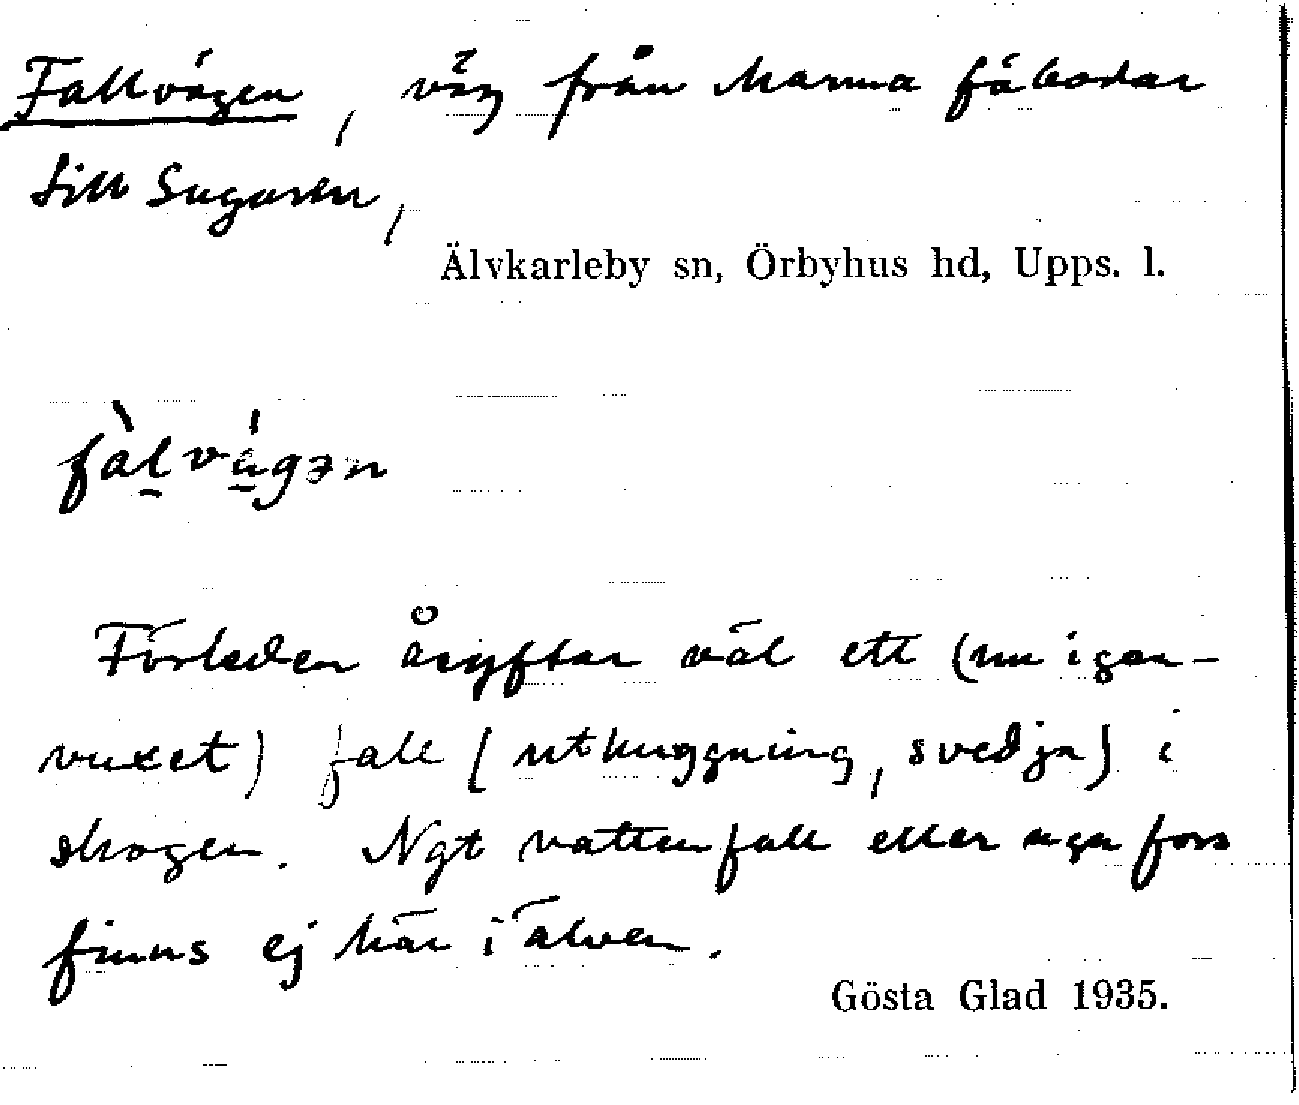 Fallvägen, väg från Marma fäbodar
till Sugaren,
Älvkarleby sn, Örbyhus hd, Upps. l.
fàl̠vá̠gən
Förleden åsyftar väl ett (nu igen-
vuxet) fall (uthuggning, svedja) i
skogen. Ngt vattenfall eller ngn fors
finns ej här i älven.
Gösta Glad 1935.